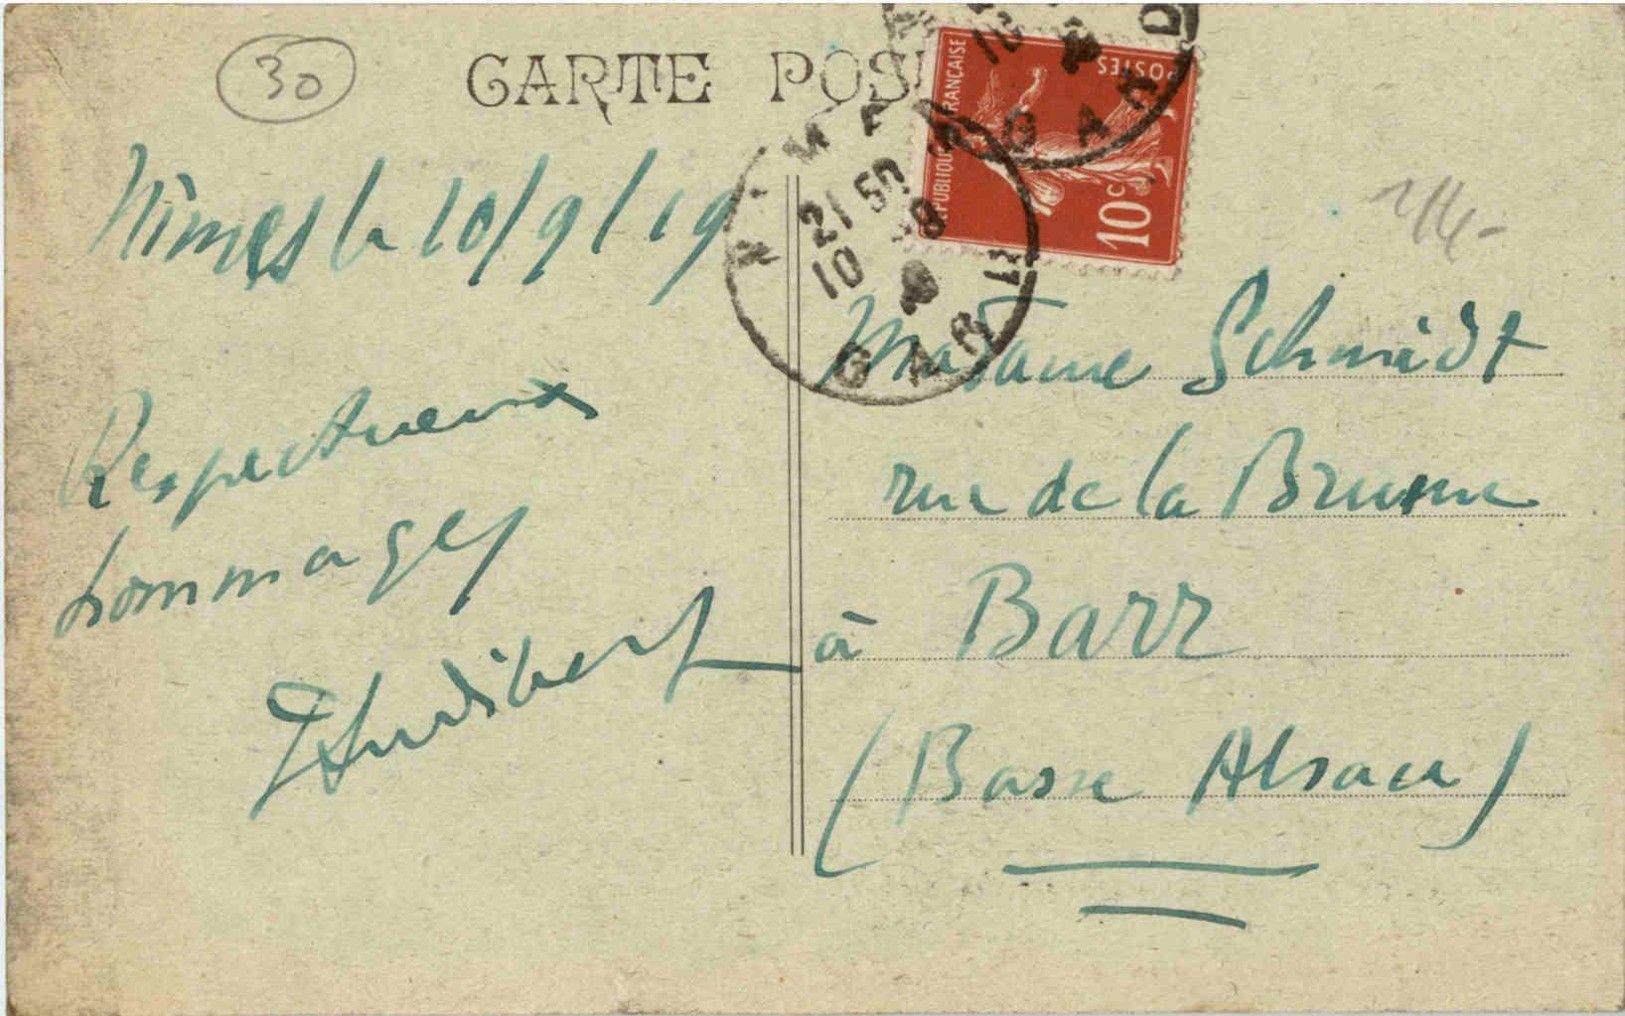 30
CARTE POS
RÉPUBLIQUE FRANÇAISE
POSTES
10c
GARD
NIMES
21 50
10 -9
GARD
Nîmes le 10/9/19
Respectueux
hommages
à
Madame Schmidt
rue de la
à Barr
(Basse Alsace)